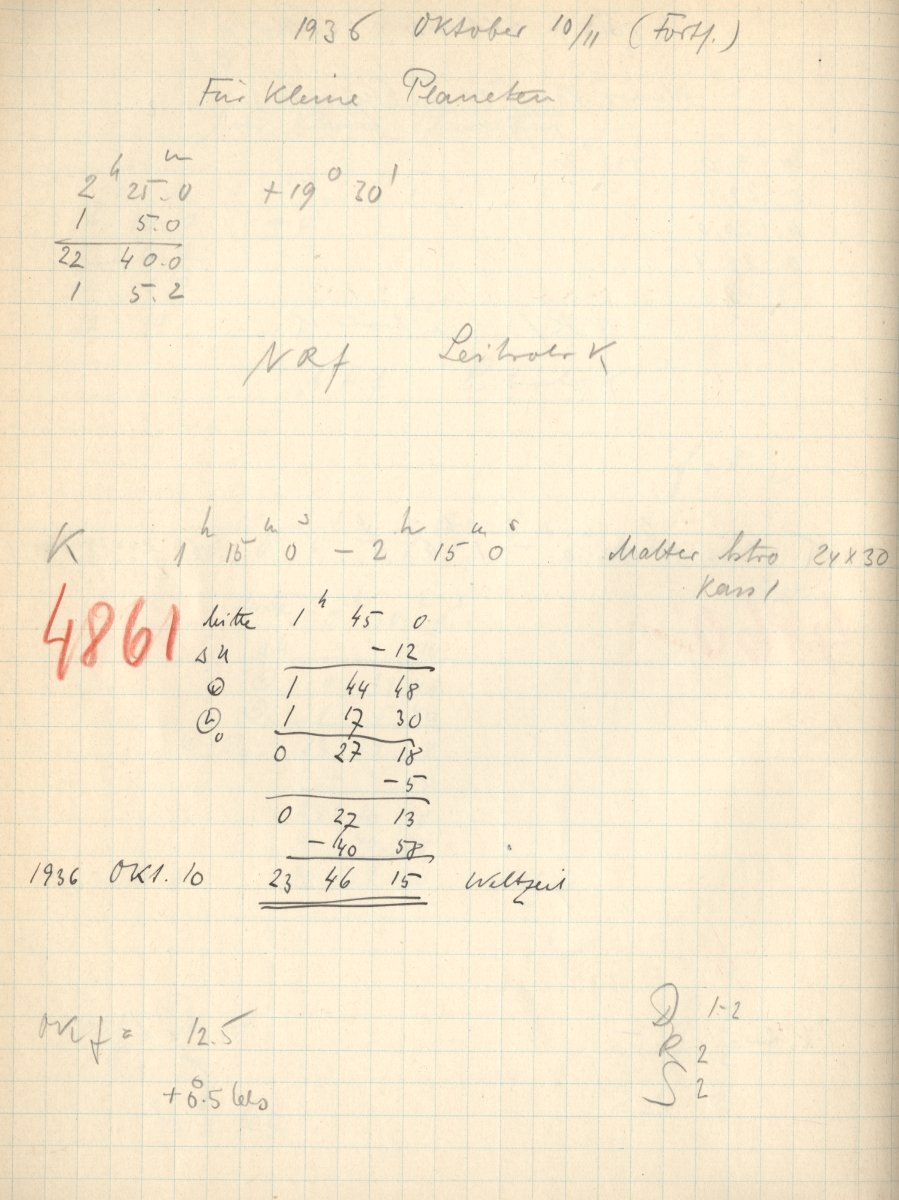 1936 Oktober 10/11 (Forts.)
Für Kleine Planeten
2h 25.0m +19° 30'
1 5.0
22 40.0
1 5.2
NRf Leitrohr K
K 1h 15m 0s – 2h 15m 0s Matter Astro 24x30
Kass 1
4861 Mitte 1h 45 0
Δu –12
1 44 48
1 17 30
0 27 18
–5
0 27 13
–40 58
1936 Okt. 10 23 46 15 Weltzeit
OKf = 12.5
+0°.5 Cels
D 1-2
R 2
S 2